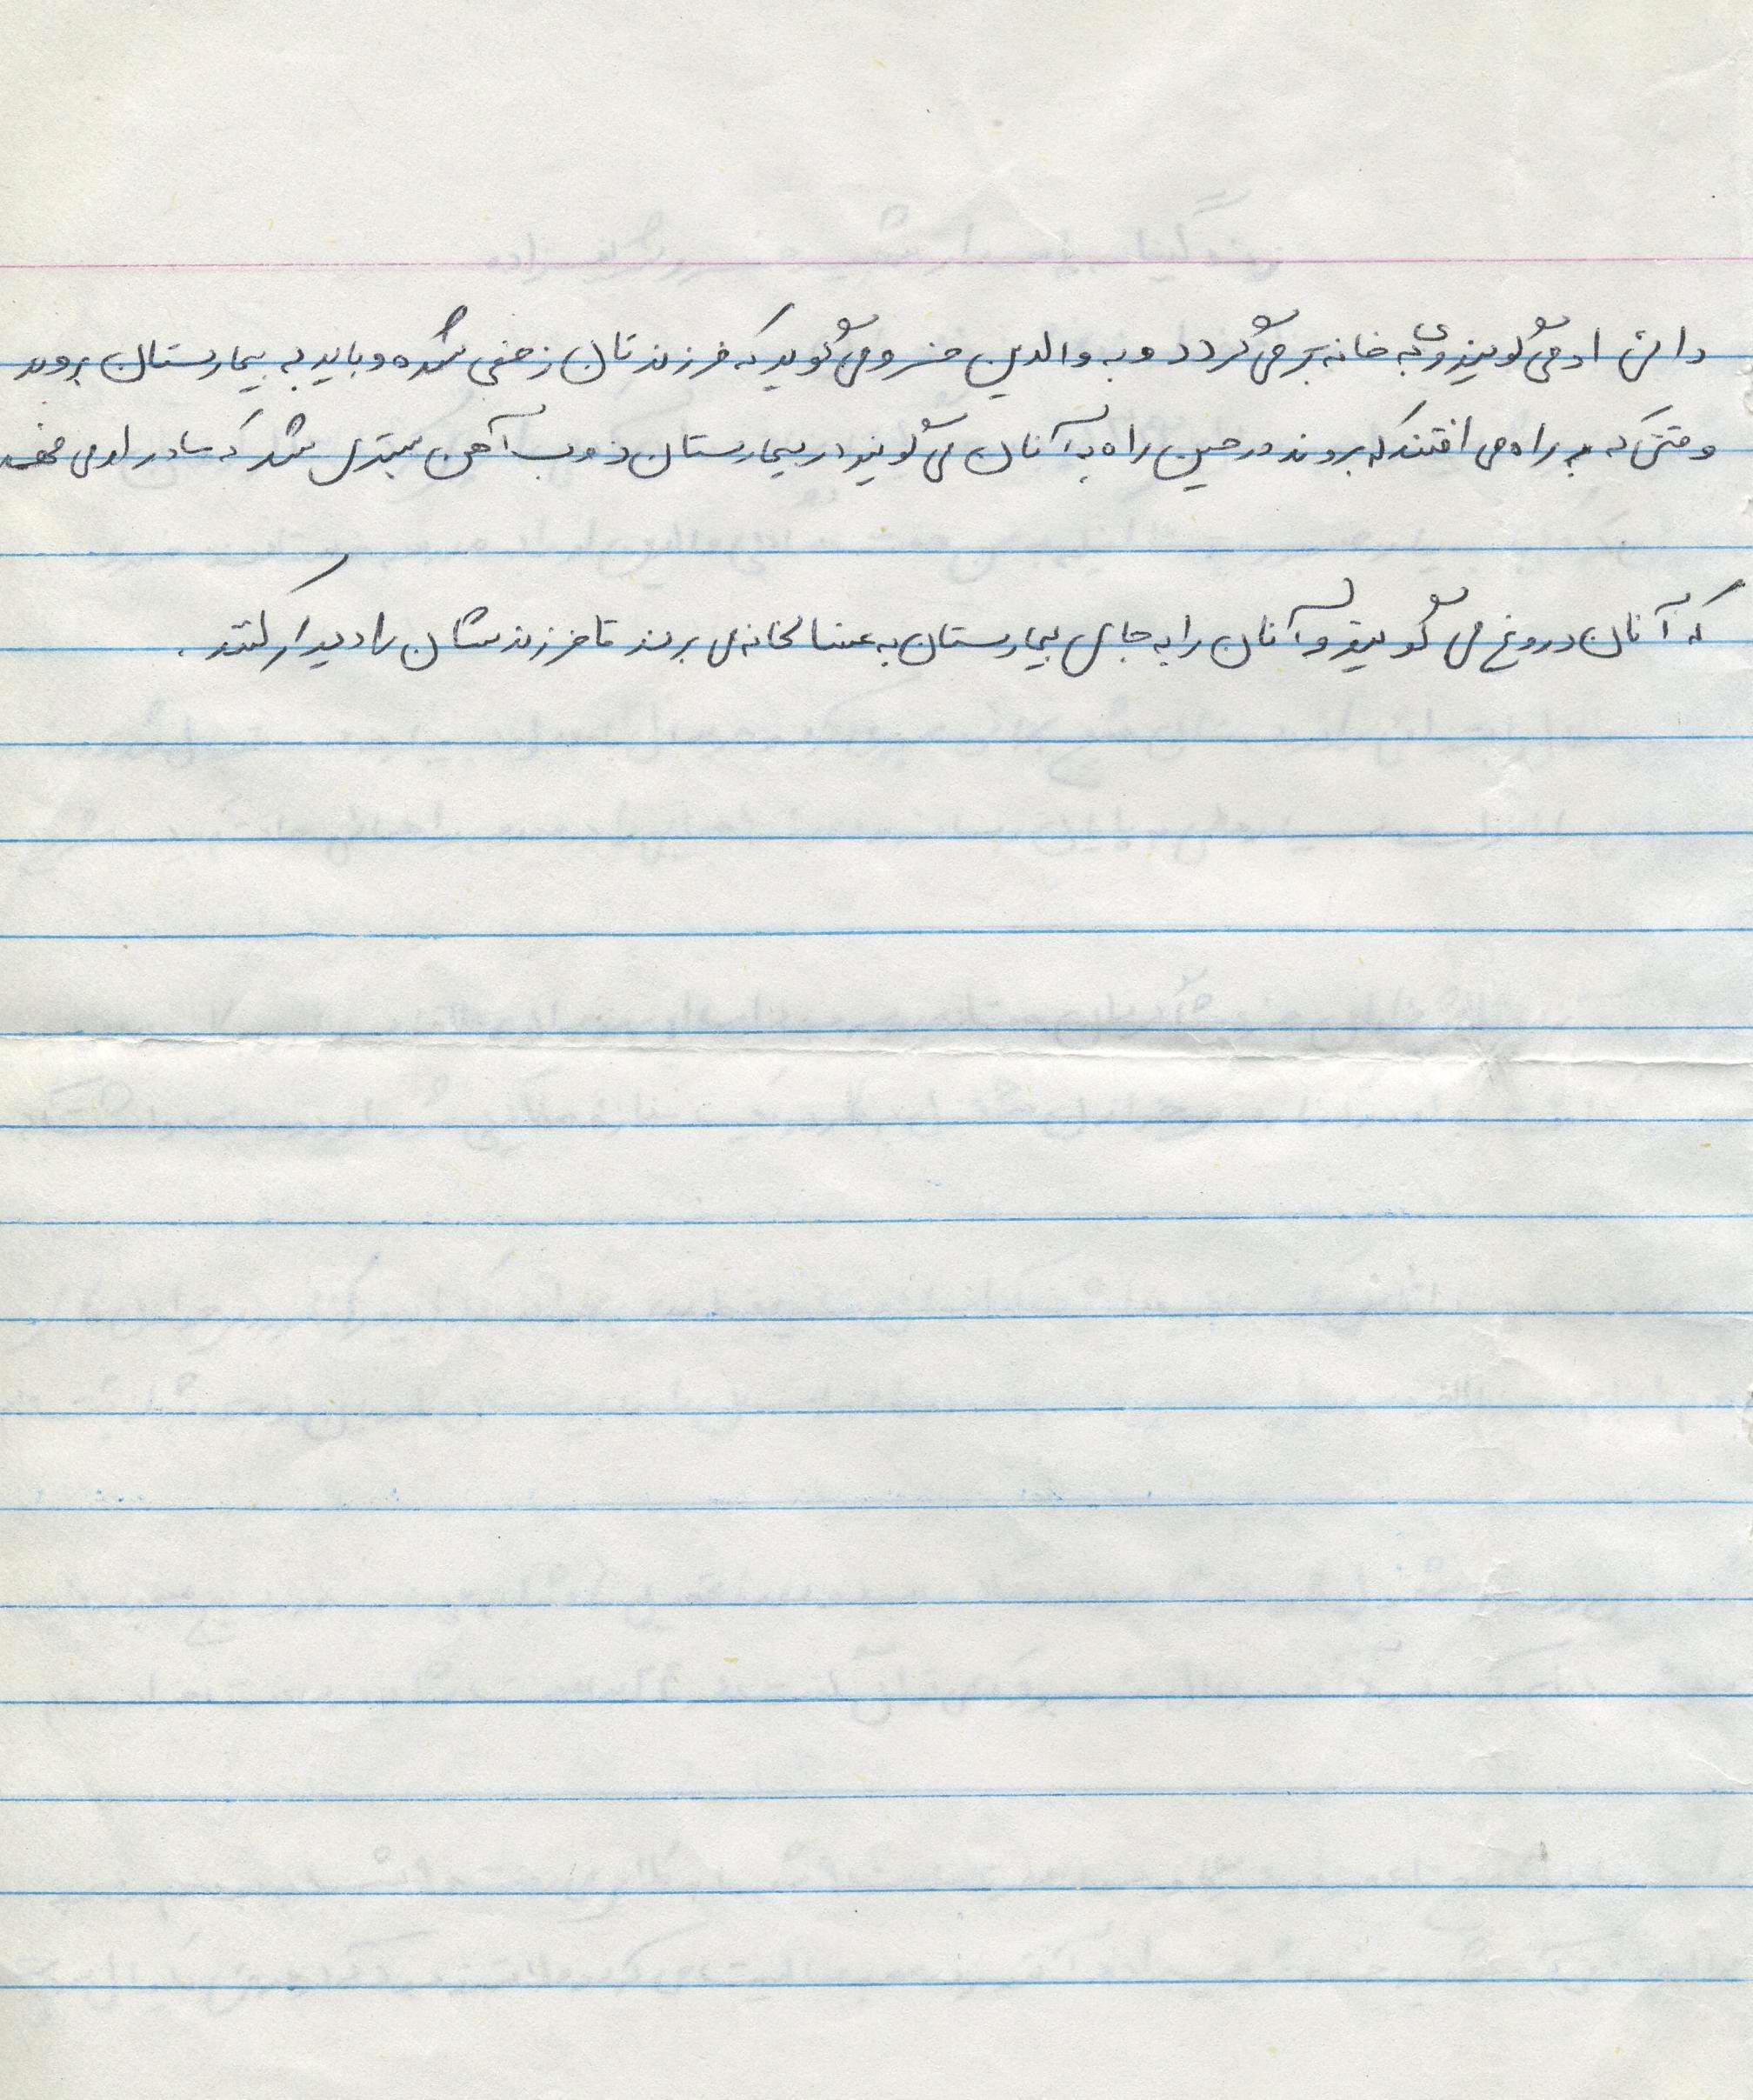 دائی او می گویند وی به خانه بر می گردد و به والدین خسرو می گوید که فرزندتان زخمی شده و باید به بیمارستان بروند
وقتی که به راه می افتند که بروند در حین راه به آنان می گویند در بیمارستان ذوب آهن بستری شد که مادر او می فهمد
که آنان دروغ می گویند و آنان را به جای بیمارستان به غسالخانه می برند تا فرزندشان را دیدار کنند.